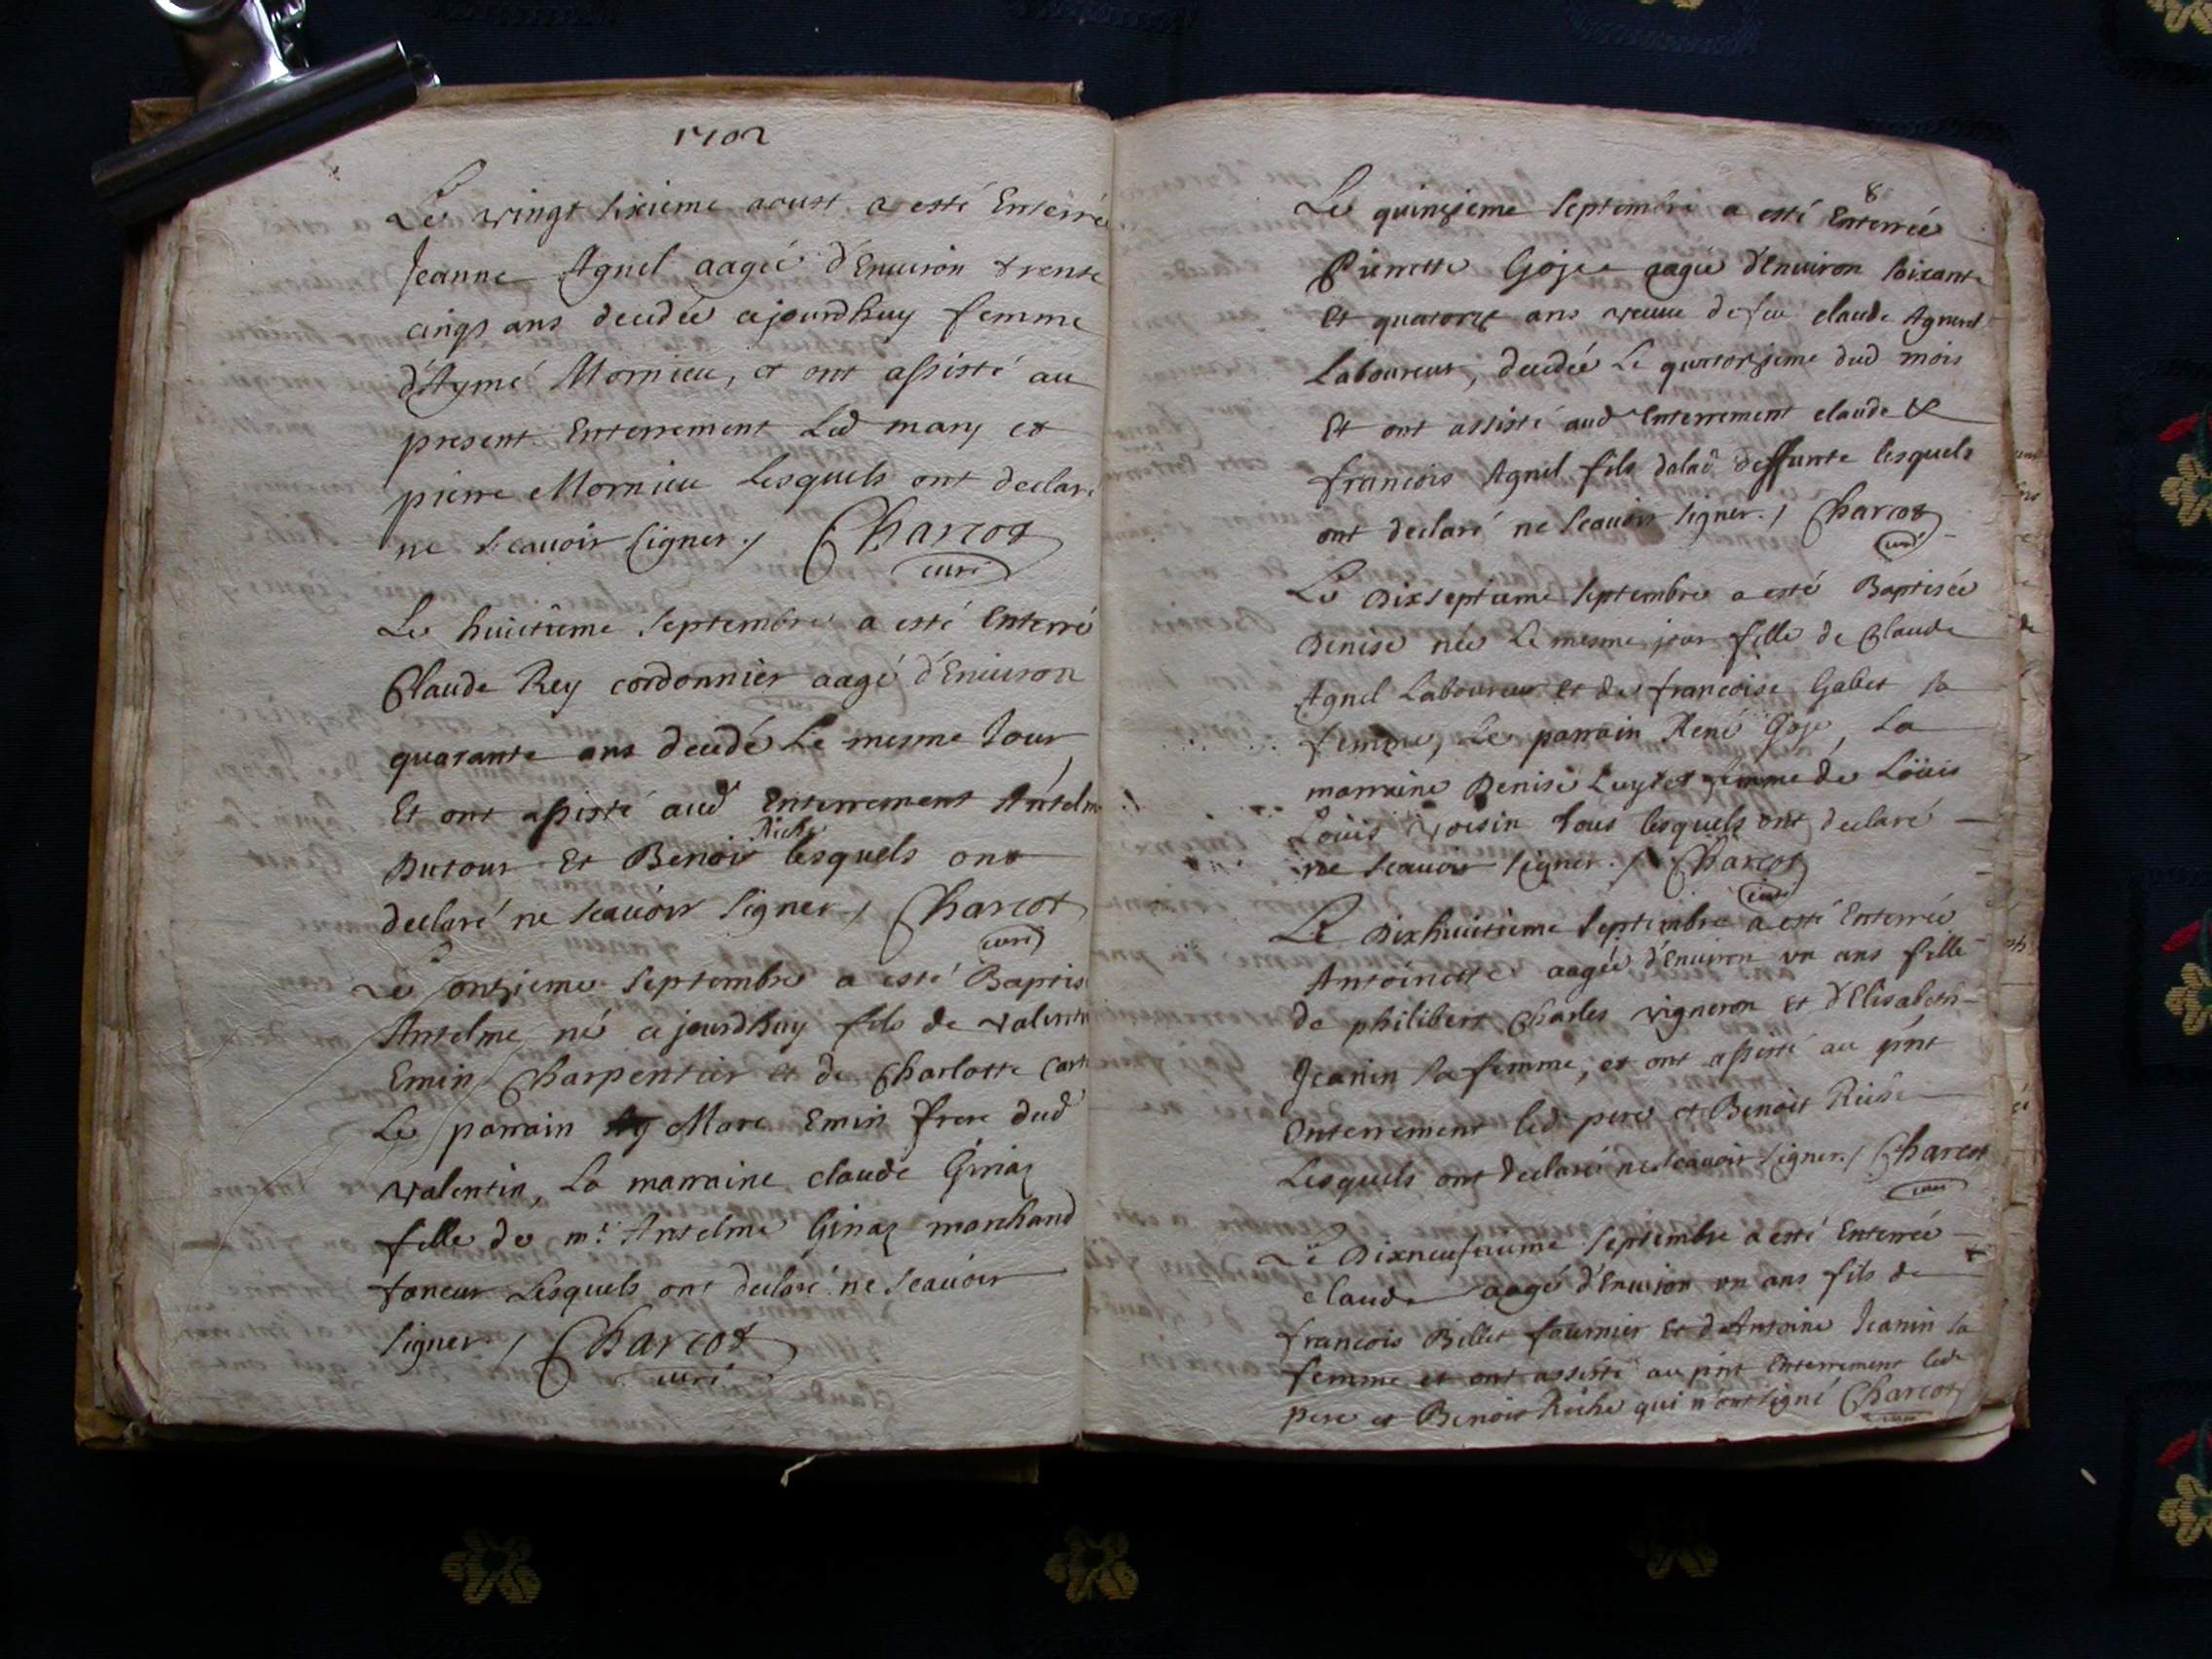 1702
Le vingt sixieme aoust a esté Enterré
Jeanne Agnel aagée d'Enuiron trente
cinqs ans decedée cejourdhuy femme
d'Aymé Mornieu, et ont assisté au
present Enterrement Led mary et
pierre Mornieu Lesquels ont declaré
ne scauoir signer./ Charcot
curé
Le huictieme septembre a esté Enterré
Claude Rey cordonnier aagé d'Enuiron
quarante ans decedé Le mesme Jour
Et ont assisté aud Enterrement Antelme
Dutour Et Benoit Riche lesquels ont
declaré ne scauoir signer./ Charcot
curé
Le onzieme septembre a esté Baptisé
Antelme né cejourdhuy fils de valentin
Emin Charpentier et de Charlotte
Le parrain Marc Emin frere dud
valentin, La marraine claude Ginaz
fille de mr. Antelme Ginaz marchand
taneur Lesquels ont declaré ne scauoir
signer./ Charcot
curé
8
Le quinzieme septembre a esté Enterrée
Pierrette Goje aagée d'Enuiron soixante
Et quatorze ans veuue de feu claude Agnel
Laboureur, decedée Le quatorzieme dud mois
Et ont assisté aud Enterrement claude &
francois Agnel fils delad deffunte lesquels
ont declaré ne scauoir signer./ Charcot
curé
Le Dixseptieme septembre a esté Baptisée
Denise née Le mesme jour fille de Claude
Agnel Laboureur et de francoise Gabet sa
femme, Le parrain René Goje, La
marraine Denise Luytet femme de Loüis
Loüis voisin tous lesquels ont declaré
ne scauoir signer./ Charcot
curé
Le Dixhuictieme septembre a esté Enterrée
Antoinette aagée d'Enuiron vn ans fille
de philibert Charles vigneron et d'Elisabeth
Jeanin sa femme, et ont assisté au pnt
Enterrement led pere et Benoit Riche
Lesquels ont declaré ne scauoir signer./ Charcot
curé
Le Dixneufuieme septembre a esté Enterrée
claude aagé d'Enuiron vn ans fils de
francois Billet fournier et d'Antoine Jeanin sa
femme et ont assisté au pnt Enterrement led
pere et Benoit Riche qui n'ont signé Charcot
curé